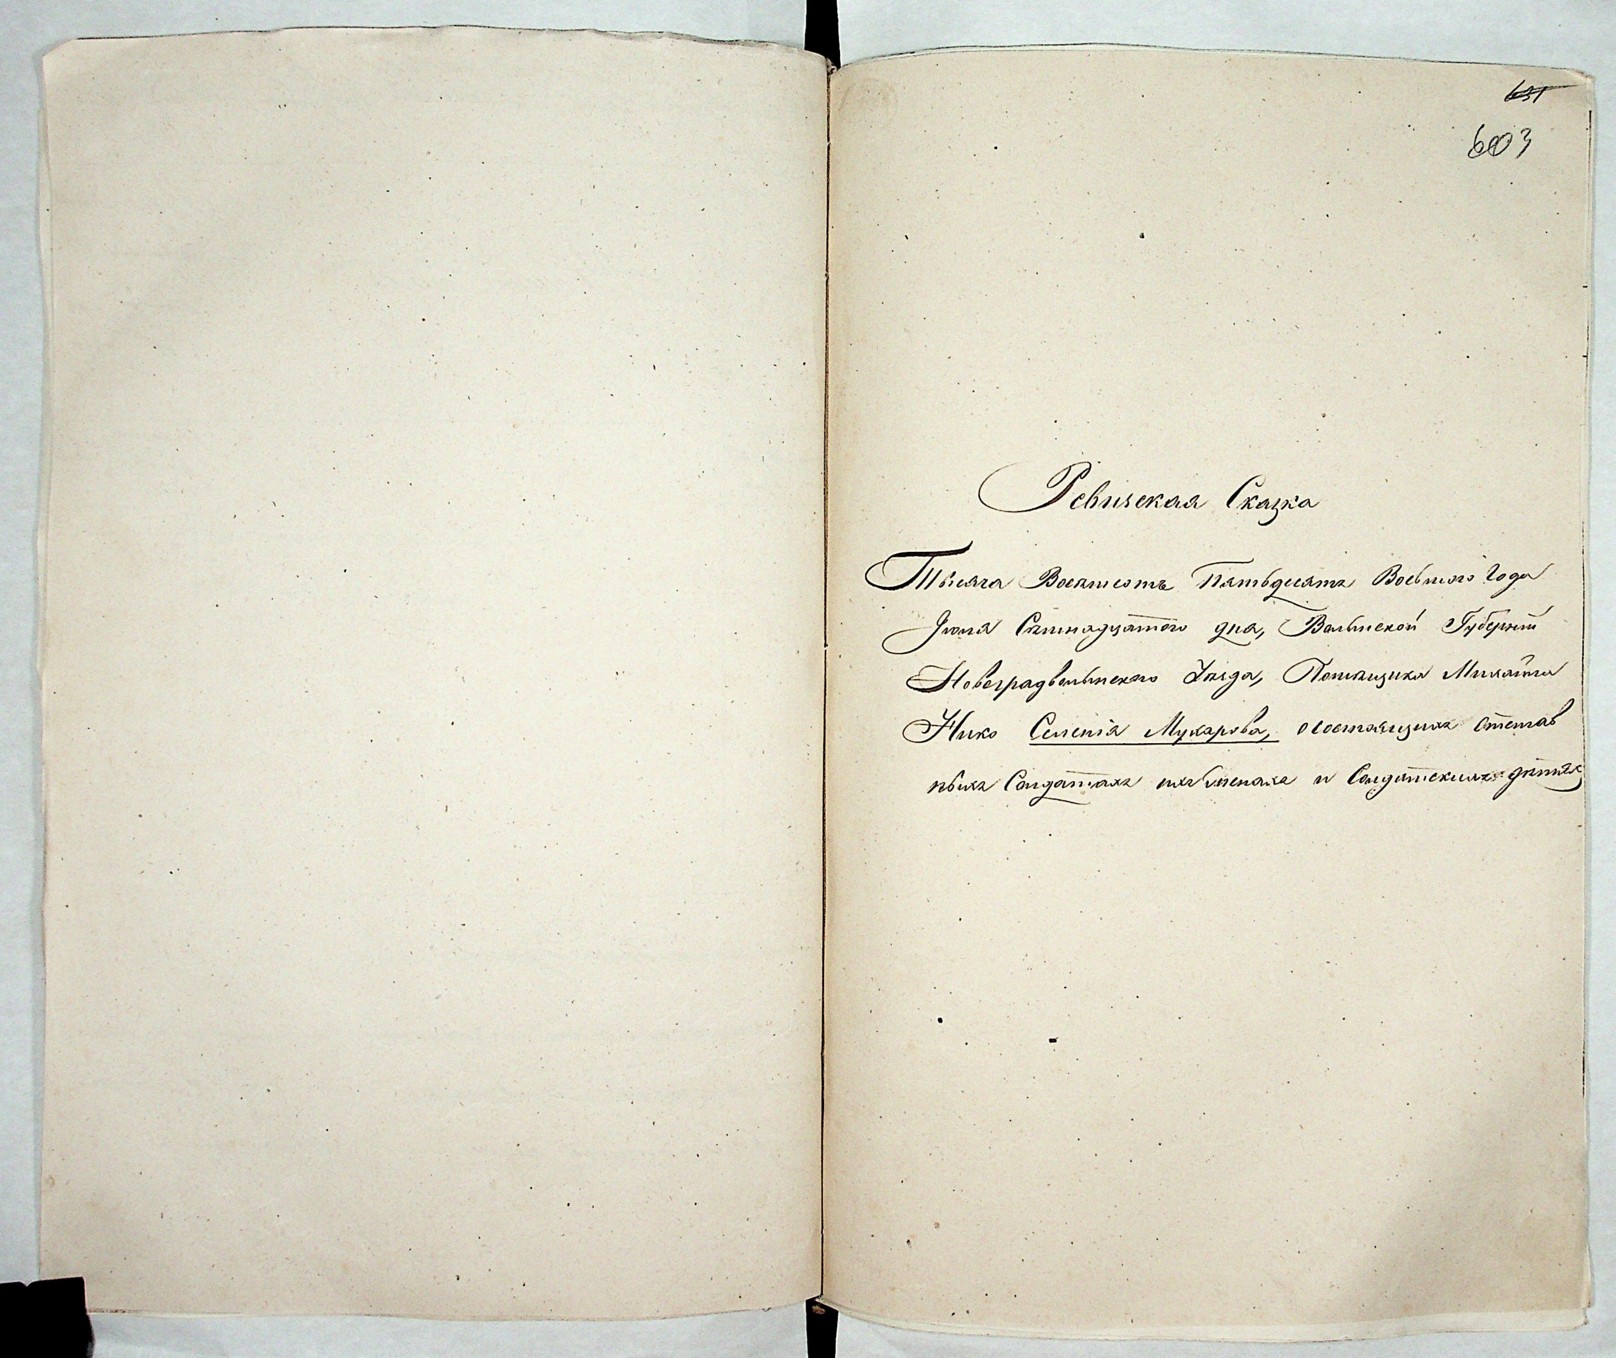 631
603
Ревизская Сказка
Тысяча Восемсотъ Пятьдесятъ Восьмого Года
Іюня Семнадцатого дня, Волынской Губерніи
Новоградволынского Уезда, Помѣщика Михайла
Нико Селенія Мухарова, осостоящихъ отстав
ныхъ Солдатахъ ихъ женахъ и Солдатскихъ дѣтяхъ